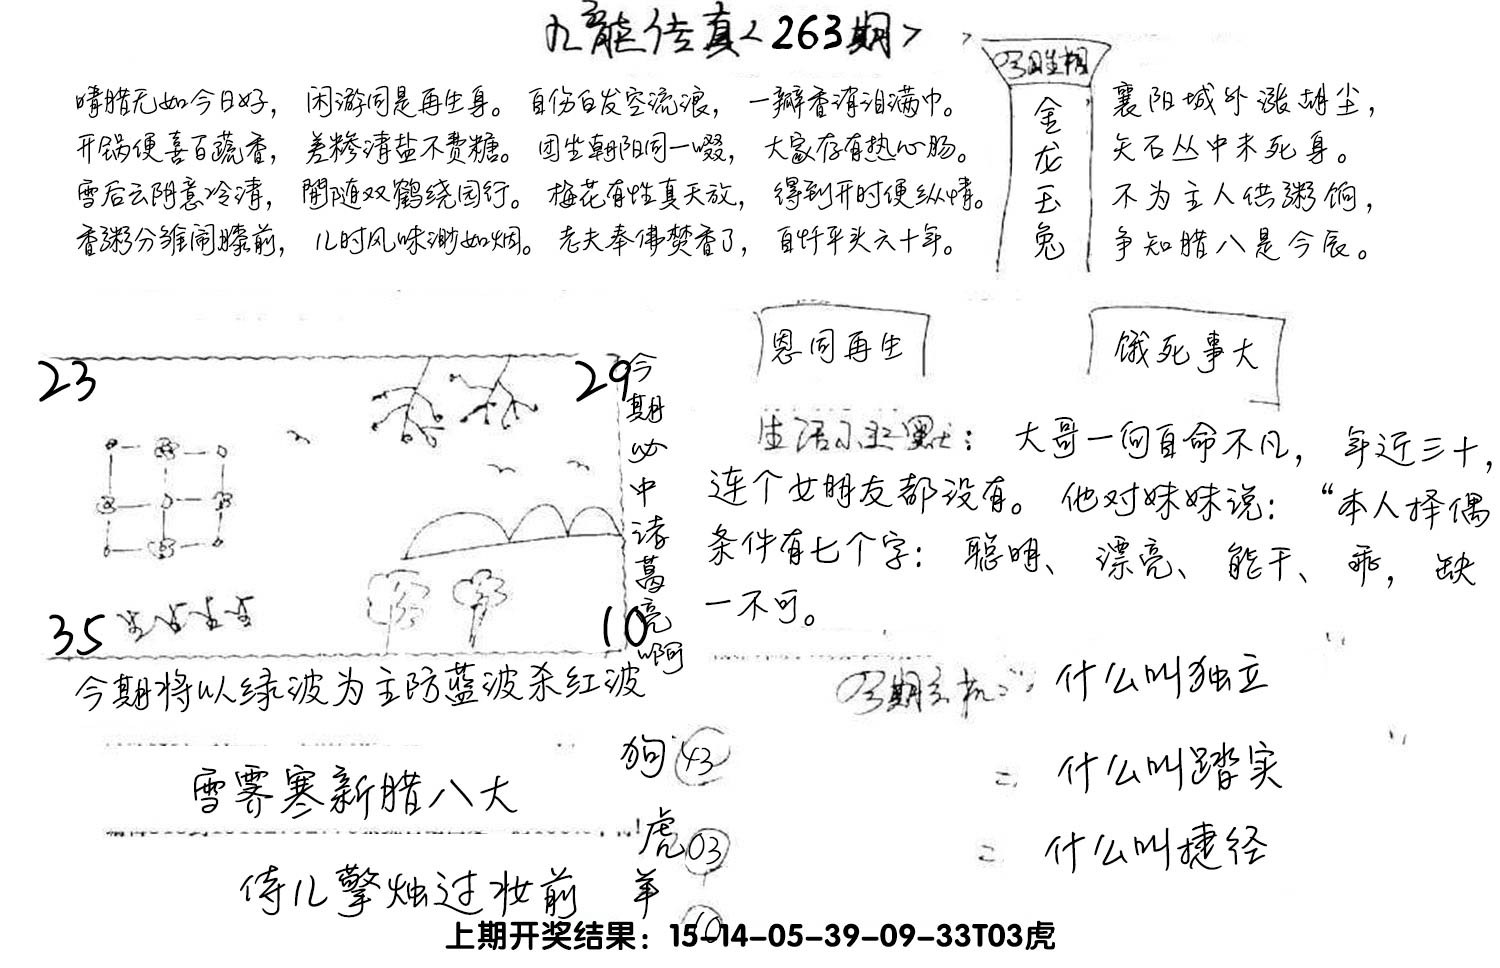 九龙传真<263期>
晴腊无如今日好，闲游同是再生身。自伤白发空流浪，一瓣香消泪满巾。
开锅便喜百蔬香，差糁清盐不费糖。团坐朝阳同一啜，大家存有热心肠。
雪后云阴意冷清，閒随双鹤绕园行。梅花有性真天放，得到开时便纵情。
香粥分雏闹膝前，儿时风味渺如烟。老夫奉佛焚香了，自忏平头六十年。
今期生相
金龙玉兔
襄阳城外涨胡尘，
矢石丛中未死身。
不为主人供粥饷，
争知腊八是今辰。
恩同再生
饿死事大
23
29
35
10
今期必中诸葛亮啊
今期将以绿波为主防蓝波杀红波
生活小幽默：大哥一向自命不凡，年近三十，
连个女朋友都没有。他对妹妹说："本人择偶
条件有七个字：聪明、漂亮、能干、乖，缺
一不可。
今期玄机：什么叫独立
什么叫踏实
什么叫捷径
雪霁寒新腊八大
侍儿擎烛过妆前
狗43
虎03
羊10
上期开奖结果：15-14-05-39-09-33T03虎